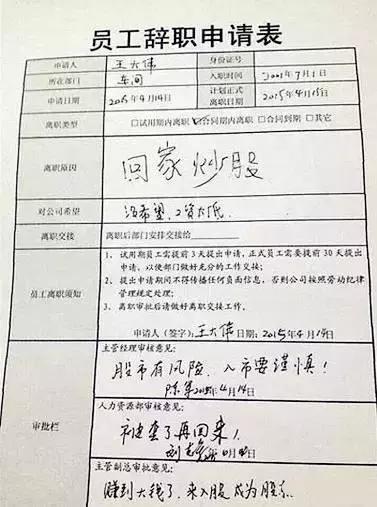 员工辞职申请表
申请人 王大伟 身份证号
所在部门 车间 入职时间 2001年7月1日
申请日期 2015年4月14日 计划正式离职日期 2015年4月15日
离职类型 □试用期内离职 ☑合同期内离职 □合同到期 □其它
离职原因 回家炒股
对公司希望 没希望,工资太低.
离职交接 离职后部门安排交接给
员工离职须知
1、试用期员工需提前3天提出申请,正式员工需要提前30天提出
申请,以便部门做好充份的工作交接;
2、提出申请期间不得传播任何负面信息,否则公司按照劳动纪律
管理规定处理;
3、离职审批后请做好离职交接工作。
申请人(签字):王大伟 日期:2015年4月14日
审批栏
主管经理审核意见:
股市有风险、入市要谨慎!
陈 2015年4月14日
人力资源部审核意见:
被套了再回来!
刘
主管副总审批意见:
赚到大钱了,来入股成为股东.